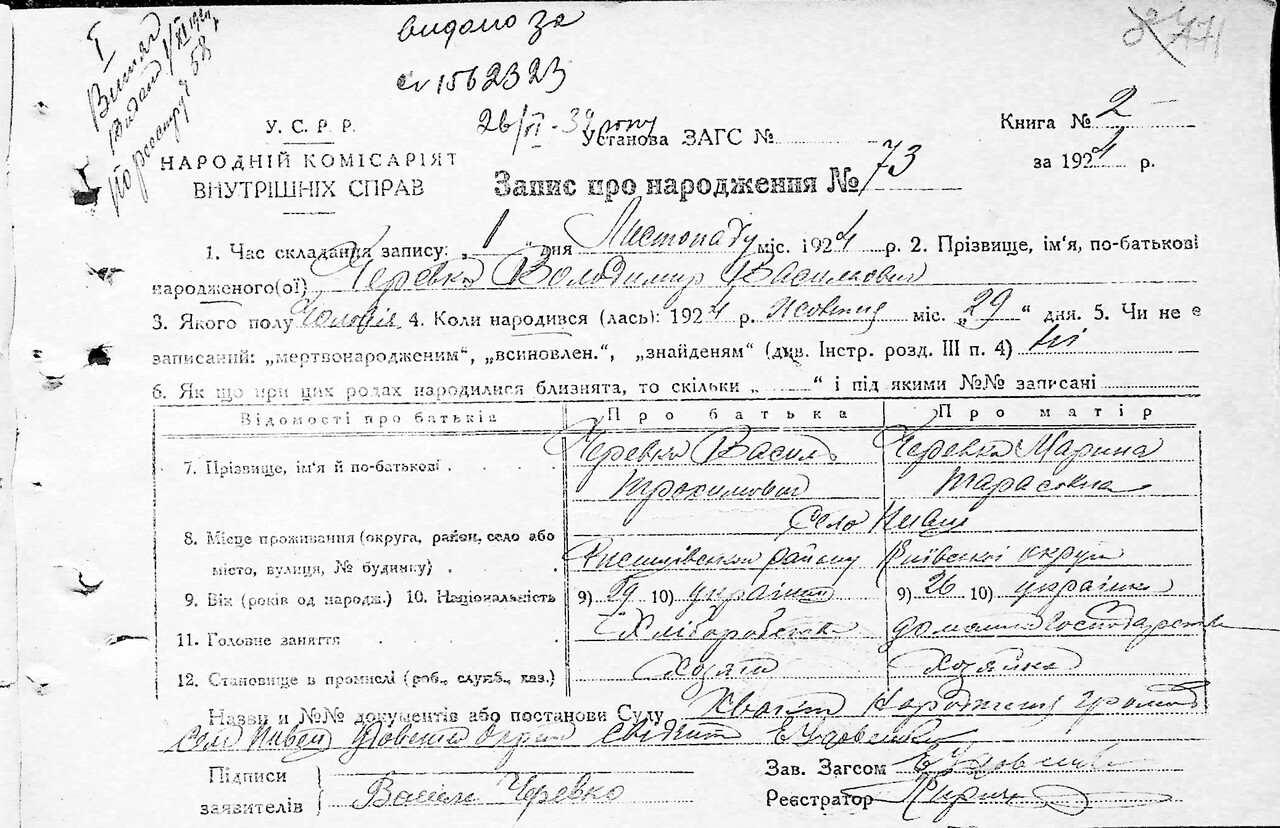 І
Витяг
Видан 1/XI 1924 р
По реєстру № 58
видано за
№ 1562323
26/VI - 39 року
8 771
У. С. Р. Р.
НАРОДНІЙ КОМІСАРІЯТ
ВНУТРІШНІХ СПРАВ
Установа ЗАГС №
Книга № 2
за 1924 р.
Запис про народження № 73
1. Час складання запису: „ 1 “ дня Листопаду міс. 1924 р. 2. Прізвище, ім'я, по-батькові
народженого(ої) Черевко Володимир Василкович
3. Якого полу Чоловіч. 4. Коли народився (лась): 192 4 р. жовтня міс. „ 29 “ дня. 5. Чи не є
записаний: „мертвонародженим“, „всиновлен.“, „знайденям“ (див. Інстр. розд. III п. 4) ні
6. Як що при цих родах народилися близнята, то скільки „ “ і під якими №№ записані
Відомості про батьків Про батька Про матір
7. Прізвище, ім'я й по-батькові Черевко Василь Трохимович Черевко Марина Тарасовна
8. Місце проживання (округа, район, село або
місто, вулиця, № будинку) Село Пивці Ржищівського району Київської округи
9. Вік (років од народж.) 10. Національність 9) 29 10) українець 9) 26 10) українка
11. Головне заняття Хліборобство домашнє господарство
12. Становище в промислі (роб., служб., хаз.) Хозяїн Хозяйка
Назви и №№ документів або постанови Суду Квит народження громад
села Пивец
Підписи
заявителів Василь Черевко
Зав. Загсом
Реєстратор